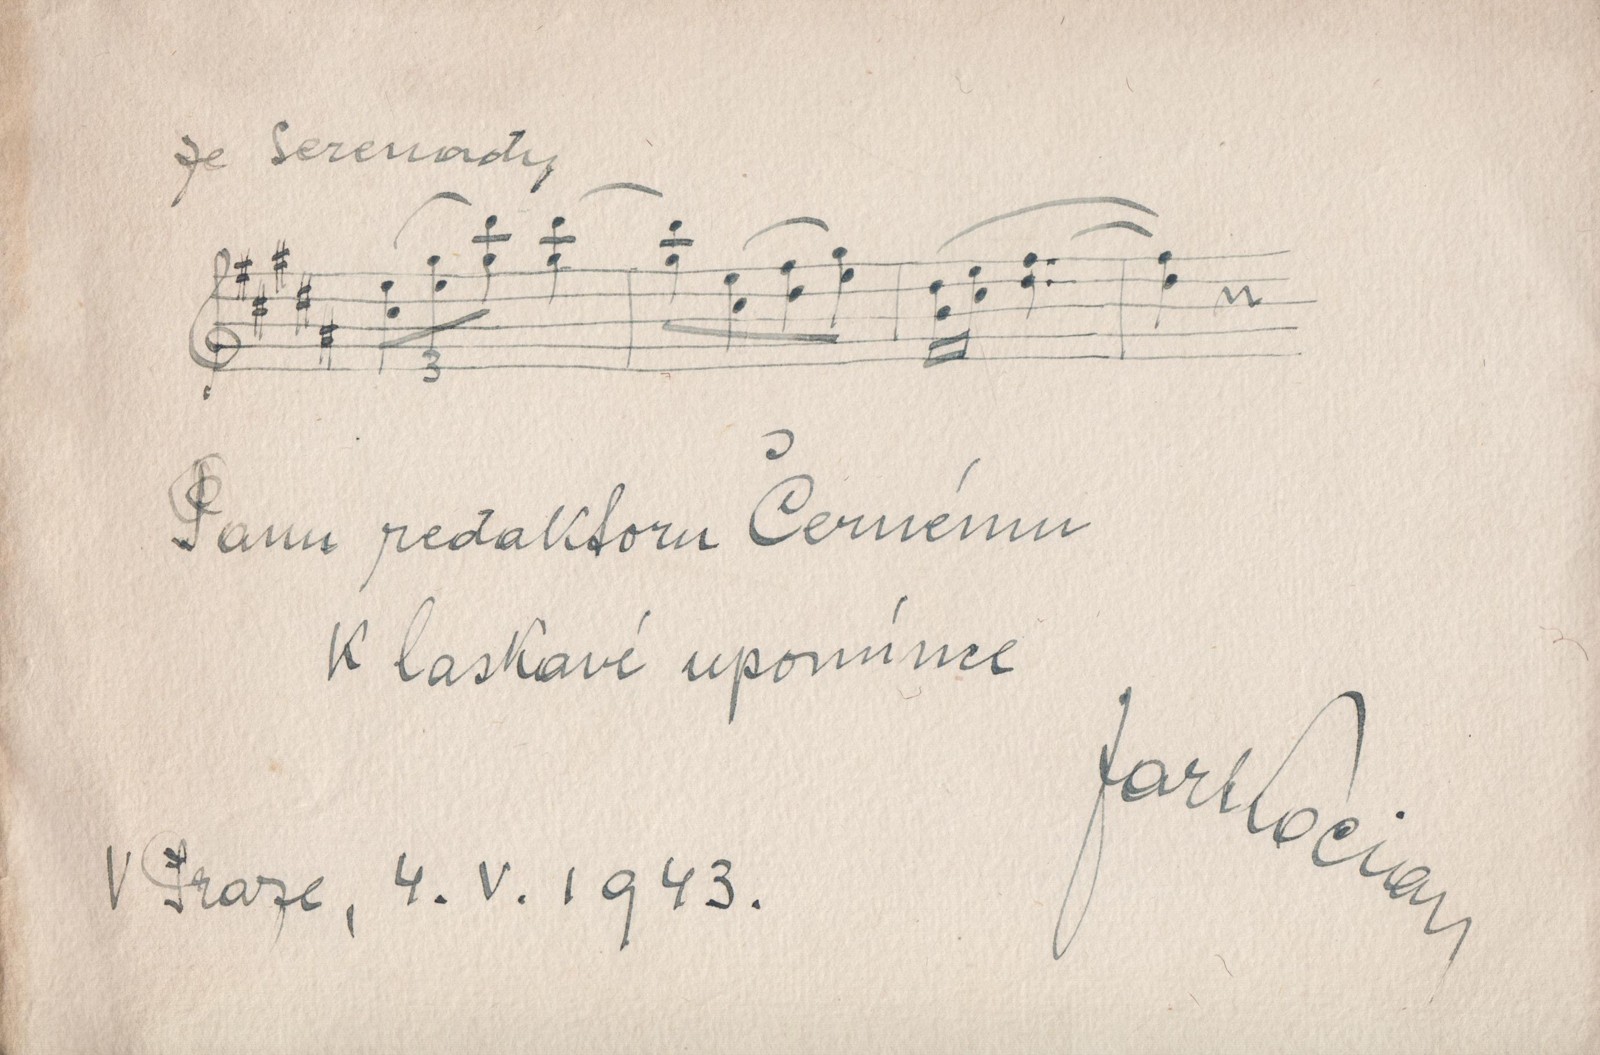 ze Serenády
3
Panu redaktoru Černému
K laskavé upomínce
Jar Kocian
V Praze, 4. V. 1943.